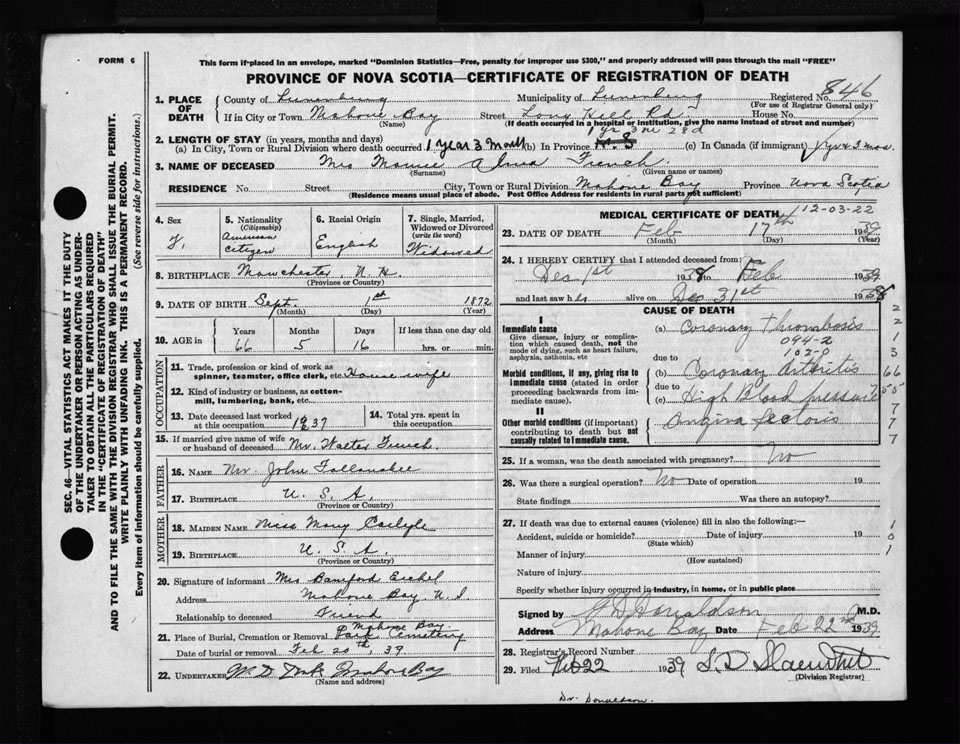 FORM 6
This form if placed in an envelope, marked "Dominion Statistics—Free, penalty for improper use $300," and properly addressed will pass through the mail "FREE"
PROVINCE OF NOVA SCOTIA—CERTIFICATE OF REGISTRATION OF DEATH
SEC. 46—VITAL STATISTICS ACT MAKES IT THE DUTY
OF THE UNDERTAKER OR PERSON ACTING AS UNDER-
TAKER TO OBTAIN ALL THE PARTICULARS REQUIRED
IN THE "CERTIFICATE OF REGISTRATION OF DEATH"
AND TO FILE THE SAME WITH THE DIVISION REGISTRAR WHO SHALL ISSUE THE BURIAL PERMIT.
WRITE PLAINLY WITH UNFADING INK. THIS IS A PERMANENT RECORD.
Every item of information should be carefully supplied. (See reverse side for instructions.)
1. PLACE OF DEATH
County of Lunenburg Municipality of Lunenburg Registered No. 846
(For use of Registrar General only)
If in City or Town Mahone Bay Street Long Hill Rd House No.
(Name) (If death occurred in a hospital or institution, give the name instead of street and number)
2. LENGTH OF STAY (in years, months and days) 1 yr 3 m 28 d
(a) In City, Town or Rural Division where death occurred 1 year 3 month (b) In Province (c) In Canada (if immigrant)
3. NAME OF DECEASED Mrs Alma French
(Surname) (Given name or names)
RESIDENCE No. Street City, Town or Rural Division Mahone Bay Province Nova Scotia
(Residence means usual place of abode. Post Office address for residents in rural parts not sufficient)
4. Sex F.
5. Nationality (Citizenship) American citizen
6. Racial Origin English
7. Single, Married, Widowed or Divorced (write the word) Widowed
8. BIRTHPLACE Manchester, N.H.
(Province or Country)
9. DATE OF BIRTH Sept. 1st 1872
(Month) (Day) (Year)
10. AGE in Years 66 Months 5 Days 16 If less than one day old hrs. or min.
OCCUPATION
11. Trade, profession or kind of work as spinner, teamster, office clerk, etc. House wife
12. Kind of industry or business, as cotton-mill, lumbering, bank, etc.
13. Date deceased last worked at this occupation 1937
14. Total yrs. spent in this occupation
15. If married give name of wife or husband of deceased Mr. Walter French
FATHER
16. NAME Mr. John Follansbee
17. BIRTHPLACE U. S. A.
(Province or Country)
MOTHER
18. MAIDEN NAME Miss Mary Carlyle
19. BIRTHPLACE U. S. A.
(Province or Country)
20. Signature of informant Mrs Bamford
Address Mahone Bay N.S.
Relationship to deceased Friend
21. Place of Burial, Cremation or Removal Mahone Bay Park Cemetery
Date of burial or removal Feb 20th, 39
22. UNDERTAKER
(Name and address)
MEDICAL CERTIFICATE OF DEATH 12-03-22
23. DATE OF DEATH Feb 17th 1939
(Month) (Day) (Year)
24. I HEREBY CERTIFY that I attended deceased from:
Dec 1st 1938 to Feb 1939
and last saw h alive on Dec 31st 1938
CAUSE OF DEATH
I
Immediate cause
Give disease, injury or complication which caused death, not the mode of dying, such as heart failure, asphyxia, asthenia, etc
(a) Coronary Thrombosis
094-2
102-0
due to
Morbid conditions, if any, giving rise to immediate cause (stated in order proceeding backwards from immediate cause).
(b) Coronary Arthritis
due to
(c) High Blood pressure
II
Other morbid conditions (if important) contributing to death but not causally related to immediate cause.
Angina Pectoris
25. If a woman, was the death associated with pregnancy? No
26. Was there a surgical operation? No Date of operation 19
State findings Was there an autopsy?
27. If death was due to external causes (violence) fill in also the following:—
Accident, suicide or homicide? Date of injury 19
(State which)
Manner of injury
(How sustained)
Nature of injury
Specify whether injury occurred in industry, in home, or in public place
Signed by Donaldson M.D.
Address Mahone Bay Date Feb 22nd 1939
28. Registrar's Record Number
29. Filed Feb 22 1939
(Division Registrar)
Dr. Donaldson.